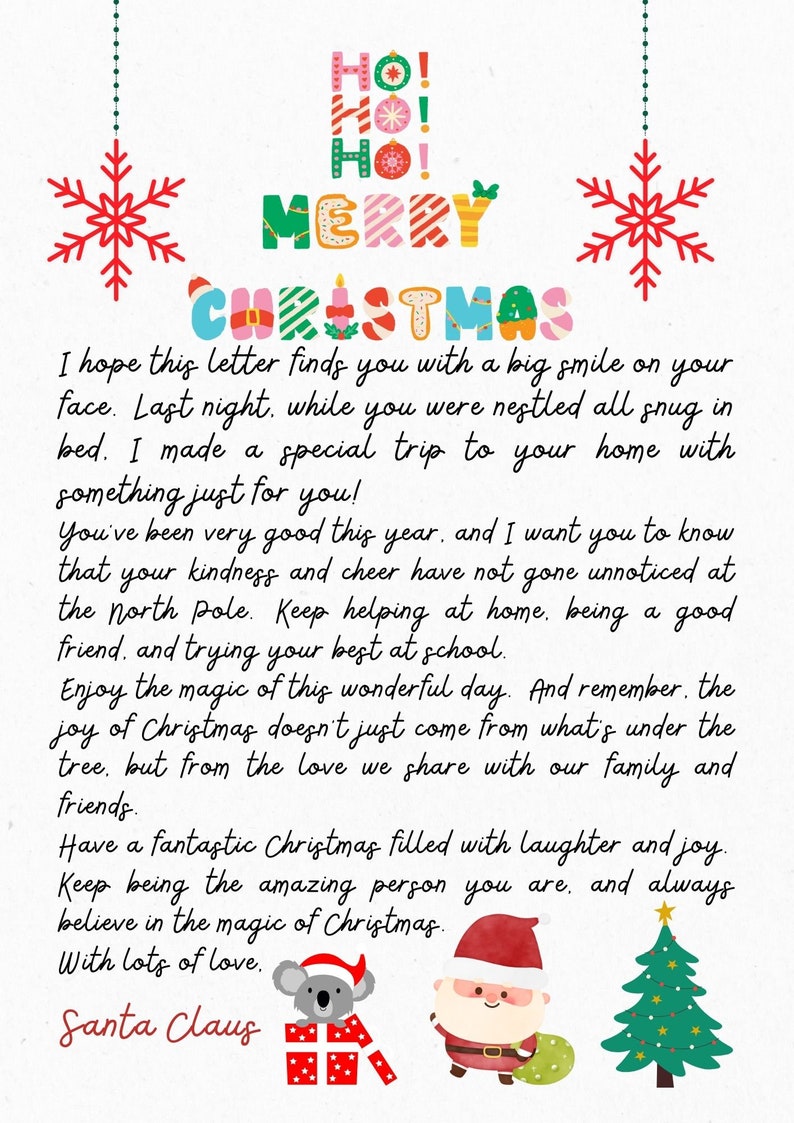 HO!
HO!
HO!
MERRY
CHRISTMAS
I hope this letter finds you with a big smile on your
face. Last night, while you were nestled all snug in
bed, I made a special trip to your home with
something just for you!
You've been very good this year, and I want you to know
that your kindness and cheer have not gone unnoticed at
the North Pole. Keep helping at home, being a good
friend, and trying your best at school.
Enjoy the magic of this wonderful day. And remember, the
joy of Christmas doesn't just come from what's under the
tree, but from the love we share with our family and
friends.
Have a fantastic Christmas filled with laughter and joy.
Keep being the amazing person you are, and always
believe in the magic of Christmas.
With lots of love,
Santa Claus